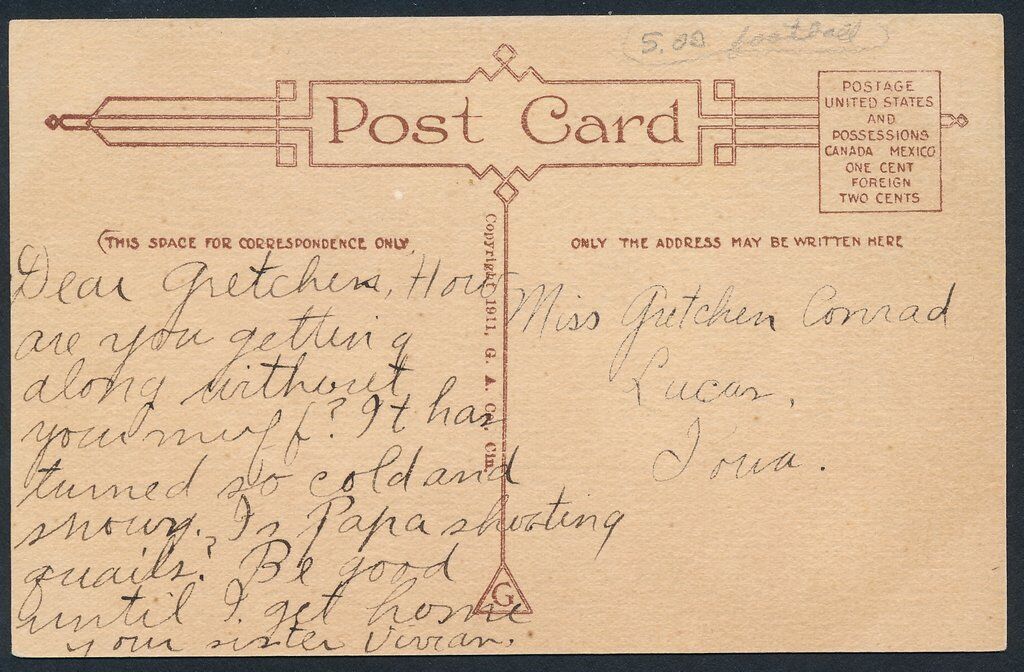 5.00 football
Post Card
POSTAGE
UNITED STATES
AND
POSSESSIONS
CANADA MEXICO
ONE CENT
FOREIGN
TWO CENTS
(THIS SPACE FOR CORRESPONDENCE ONLY,
ONLY THE ADDRESS MAY BE WRITTEN HERE
Copyright 1911, G. A. Co. Cin.
Dear Gretchen, How
are you getting
along without
your muff? It has
turned so cold and
snowy. Is Papa shooting
quails? Be good
until I get home
your sister Vivian.
Miss Gretchen Conrad
Lucas,
Iowa.
G